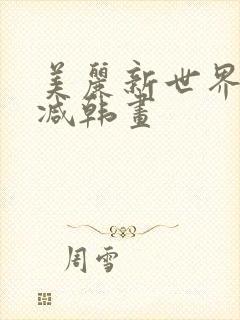 美麗新世界
减韩畫
周雪